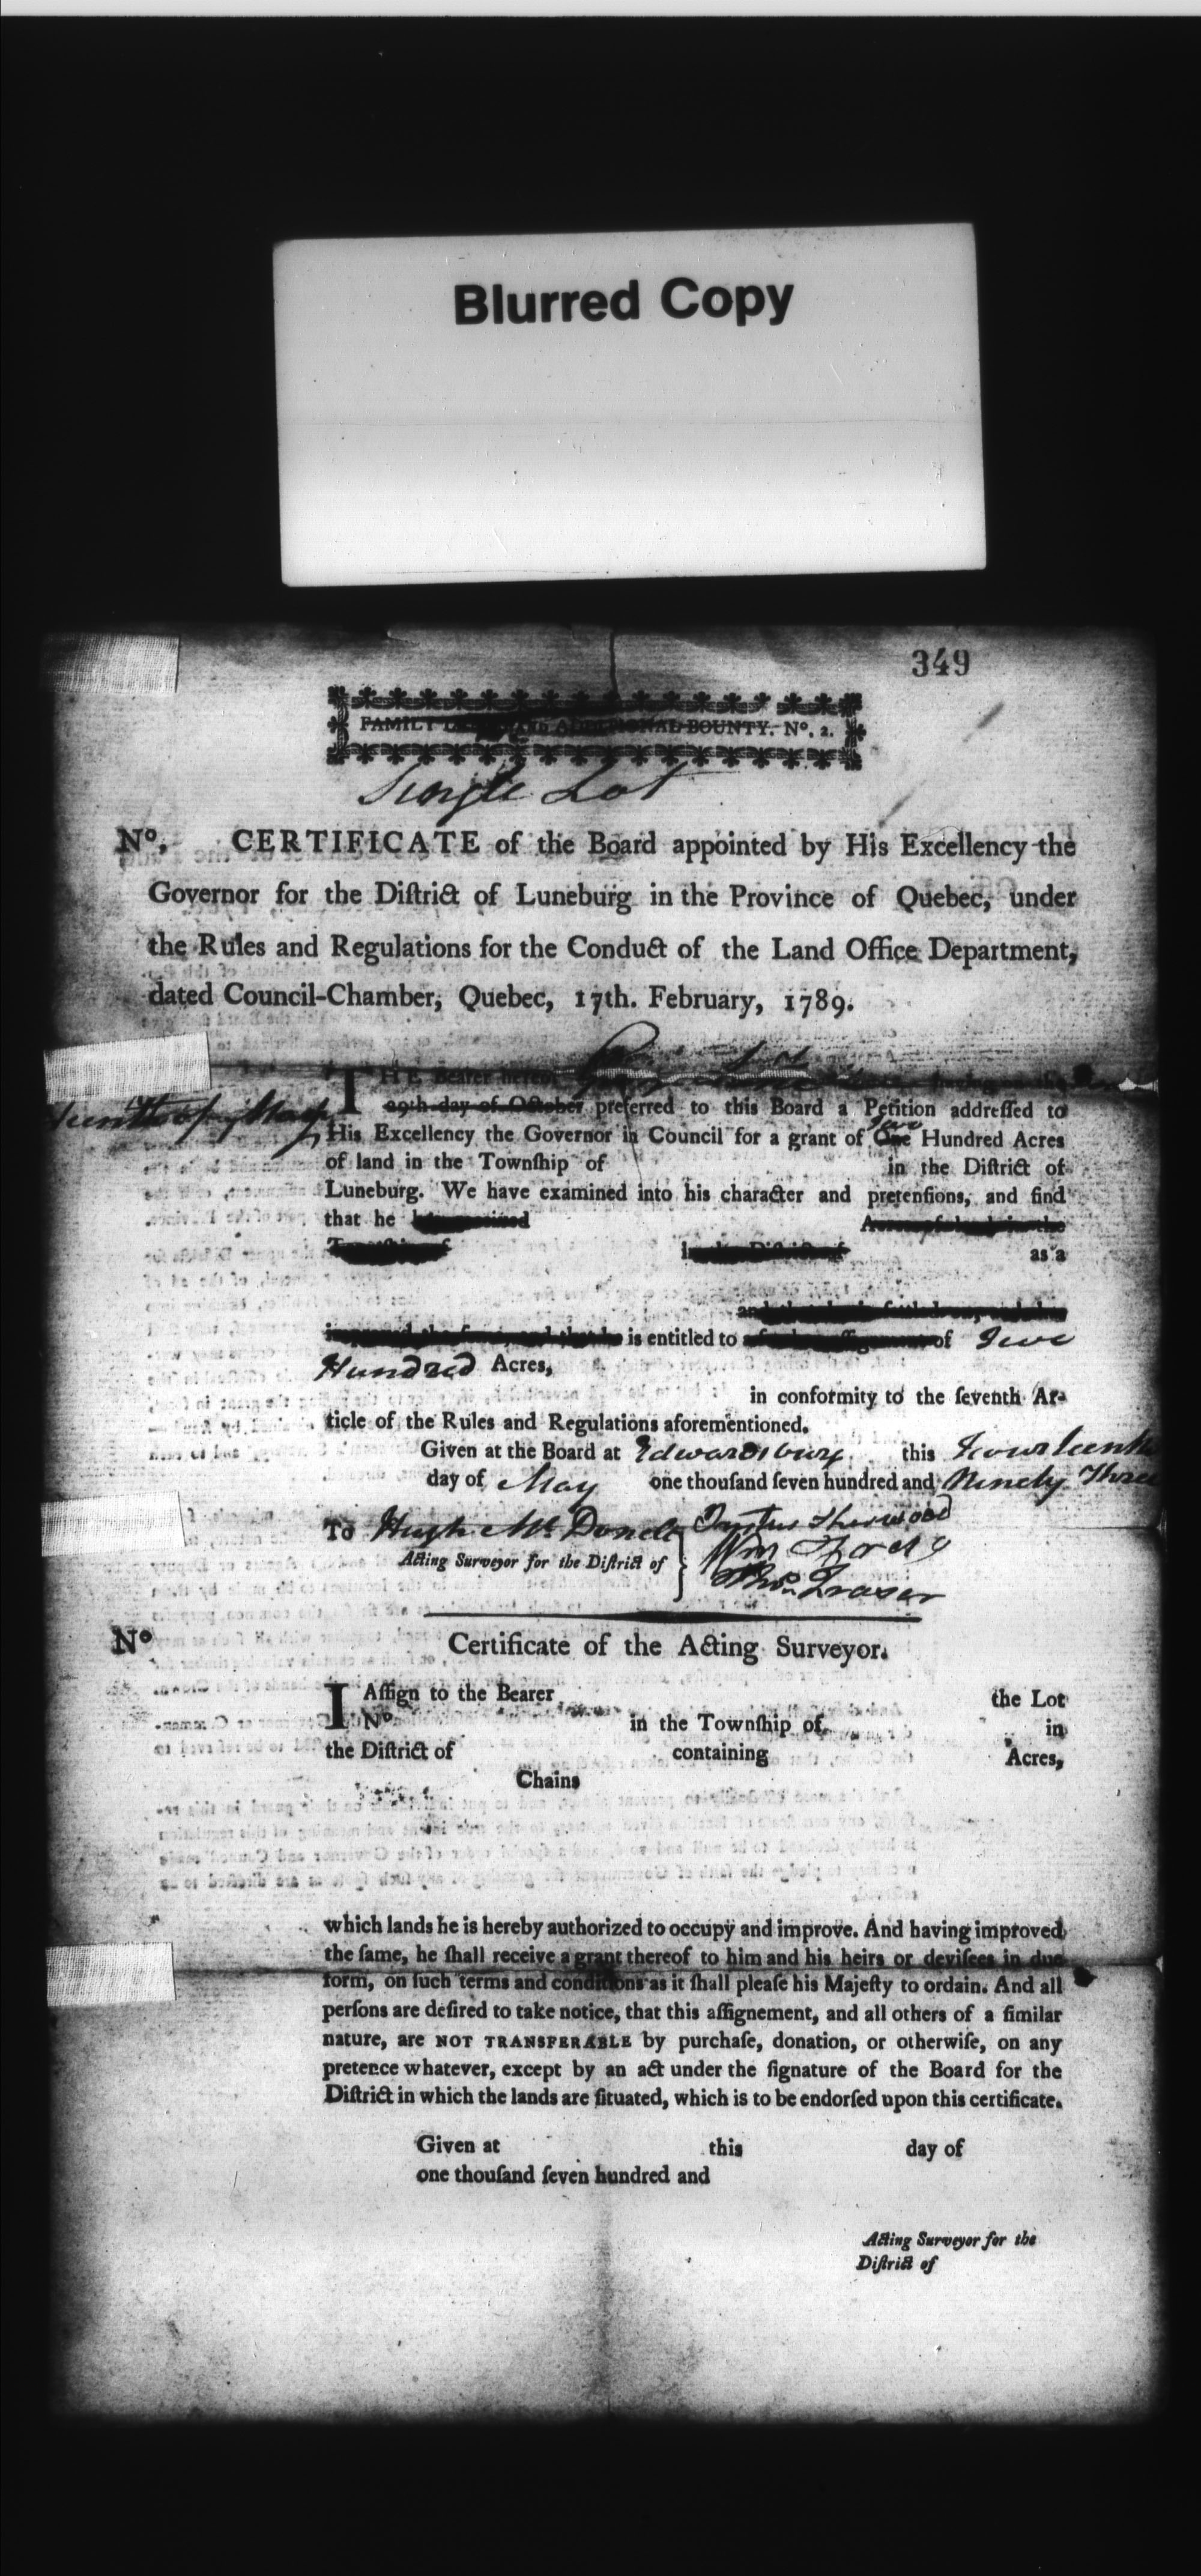 Blurred Copy
349
FAMILY ADDITIONAL BOUNTY. Nº. 2.
Single Lot
Nº. CERTIFICATE of the Board appointed by His Excellency the
Governor for the Diſtrict of Luneburg in the Province of Quebec, under
the Rules and Regulations for the Conduct of the Land Office Department,
dated Council-Chamber, Quebec, 17th. February, 1789.
THE Bearer hereof
of May
29th day of October preferred to this Board a Petition addreſſed to
His Excellency the Governor in Council for a grant of One Two Hundred Acres
of land in the Townſhip of in the Diſtrict of
Luneburg. We have examined into his character and pretenſions, and find
that he
as a
is entitled to of Two
Hundred Acres,
in conformity to the ſeventh Ar-
ticle of the Rules and Regulations aforementioned.
Given at the Board at Edwardsburg this Fourteenth
day of May one thouſand ſeven hundred and Ninety Three
To Hugh McDonell Justus Sherwood
Acting Surveyor for the Diſtrict of
Wm
Thos. Fraser
Nº Certificate of the Acting Surveyor.
I Aſſign to the Bearer the Lot
Nº in the Townſhip of in
the Diſtrict of containing Acres,
Chains
which lands he is hereby authorized to occupy and improve. And having improved
the ſame, he ſhall receive a grant thereof to him and his heirs or deviſees in due
form, on ſuch terms and conditions as it ſhall pleaſe his Majeſty to ordain. And all
perſons are deſired to take notice, that this aſſignement, and all others of a ſimilar
nature, are NOT TRANSFERABLE by purchaſe, donation, or otherwiſe, on any
pretence whatever, except by an act under the ſignature of the Board for the
Diſtrict in which the lands are ſituated, which is to be endorſed upon this certificate.
Given at this day of
one thouſand ſeven hundred and
Acting Surveyor for the
Diſtrict of